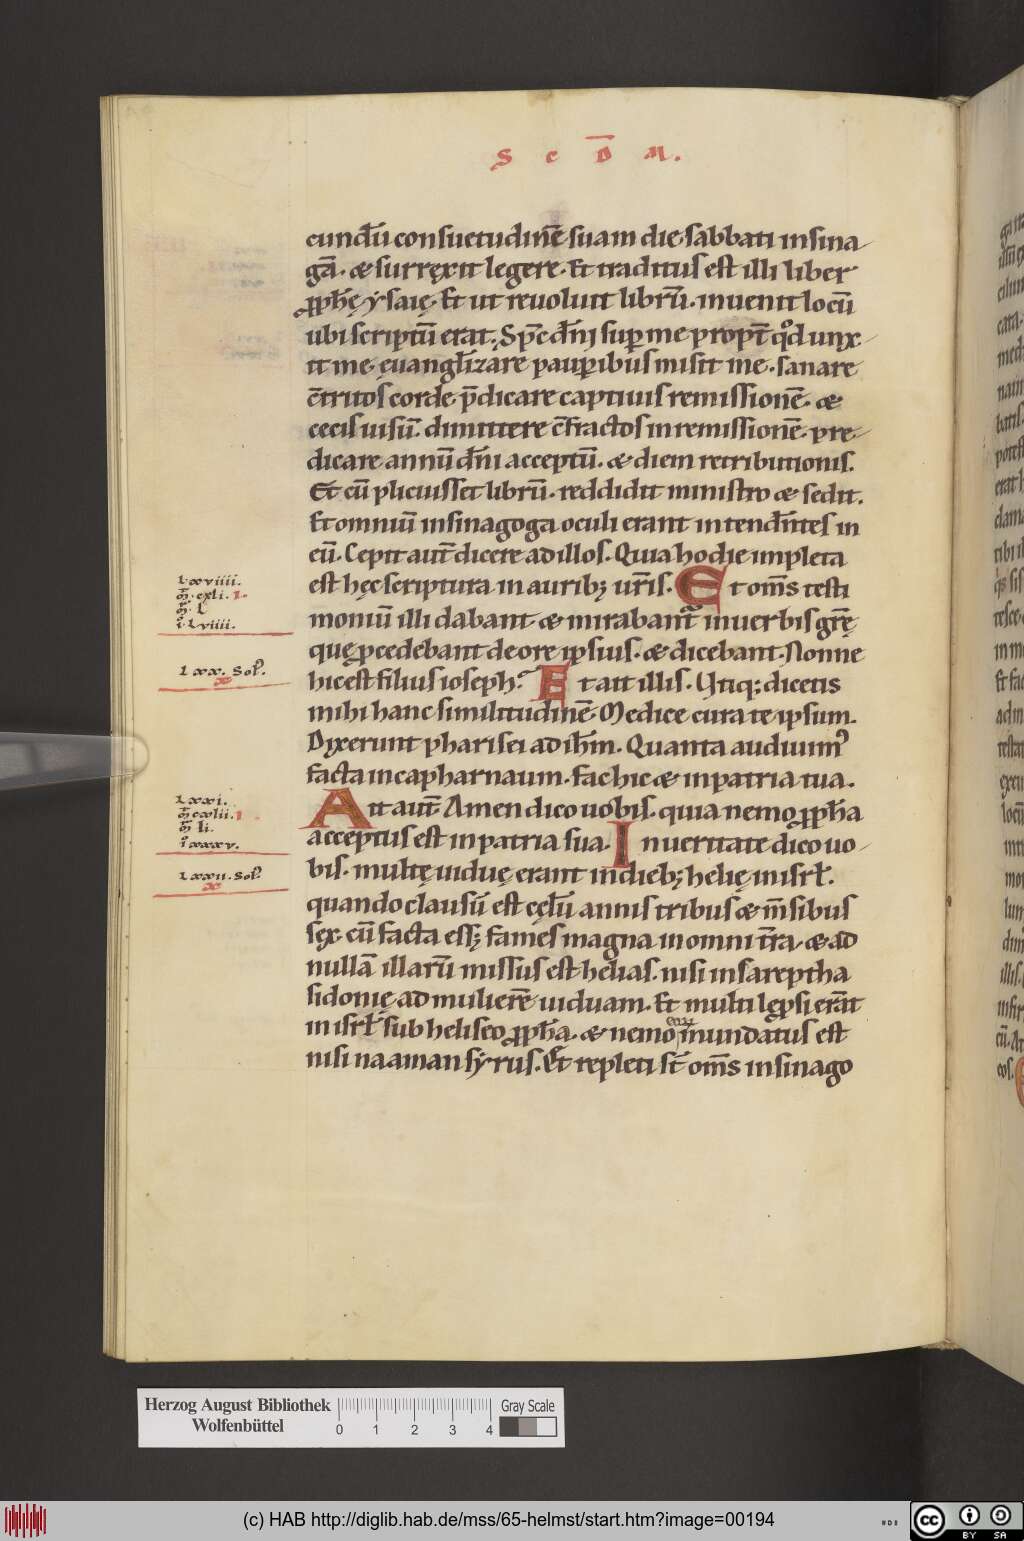 S c D̄ M.
cundū consuetudinē suam die sabbati in sina-
gā. & surręxit legere. Et traditus est illi liber
ꝓph̄ę ẏsaię. Et ut reuoluit librū. inuenit locū
ubi scriptū erat. Sp̄c dn̄i suꝑ me propt̄ qd̊ unx-
it me. euangl̄izare pauꝑibus misit me. sanare
c̄tritos corde. p̄dicare captiuis remissionē. &
cecis uisū. dimittere c̄fractos in remissionē. pre-
dicare annū dn̄i acceptū. & diem retributionis.
Et cū plicuisset librū. reddidit ministro & sedit.
Et omniū in sinagoga oculi erant intendn̄tes in
eū. Cepit aut̄ dicere ad illos. Quia hodie impleta
est hęc scriptura in aurib; ur̄is. Et om̄s testi
moniū illi dabant & mirabant̃ in uerbis gr̄ę
quę ꝓcedebant de ore ipsius. & dicebant. Nonne
hic est filius ioseph? Et ait illis. Utiq; dicetis
mihi hanc similitudinē. Medice cura te ipsum.
Dixerunt pharisei ad ih̄m. Quanta audiuim᾽
facta in capharnaum. fac hic & in patria tua.
Ait aut̄ Amen dico uobis. quia nemo ꝓph̄a
acceptus est in patria sua. In ueritate dico uo-
bis. multę uiduę erant in dieb; helię in isrł.
quando clausū est cęlū annis tribus & m̄sibus
sęx. cū facta ess; fames magna in omni t̄ra. & ad
nullā illarū missus est helias. nisi in sareptha
sidonię ad mulierē uiduam. Et multi lęꝓsi erāt
in isrł sub heliseo ꝓph̄a. & nemo eoꝝ mundatus est
nisi naaman sẏrus. Et repleti st̄ om̄s in sinago
lxviiii.
m̄. cxli. i.
m̄. l
i̊. lviiii.
lxx. Soł.
x
lxxi.
m̄ cxlii. i
m̄. li.
i̊ xxxv.
lxxii. Soł.
x
Herzog August Bibliothek
Wolfenbüttel
0 1 2 3 4
Gray Scale
(c) HAB http://diglib.hab.de/mss/65-helmst/start.htm?image=00194
cc BY SA